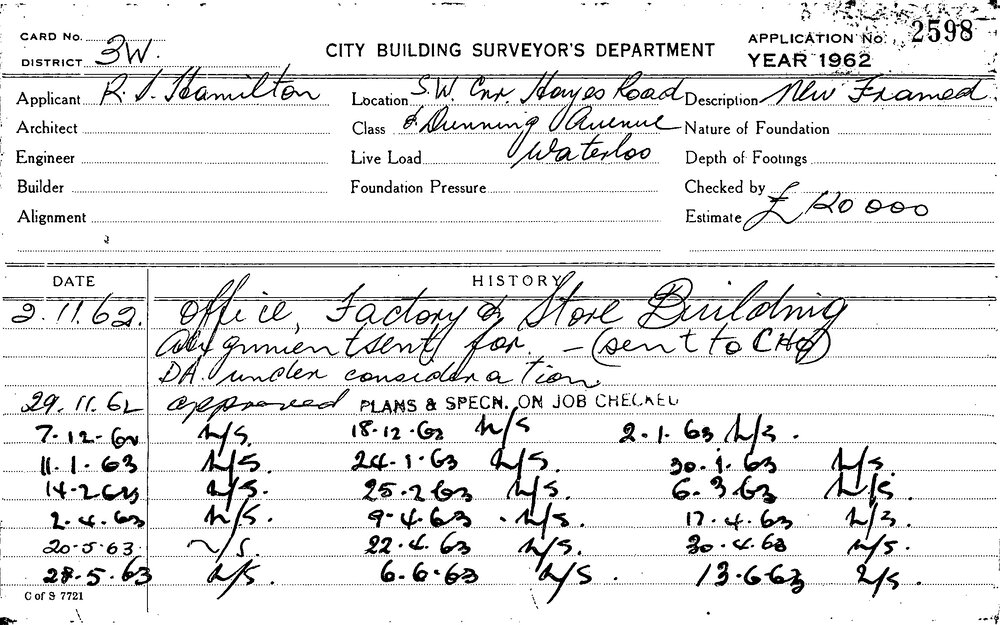 CARD No.
DISTRICT 3W.
CITY BUILDING SURVEYOR'S DEPARTMENT
APPLICATION No. 2598
YEAR 1962
Applicant R. S. Hamilton Location S.W. Cnr. Hayes Road Description New Framed
Architect Class & Dunning Avenue Nature of Foundation
Engineer Live Load Waterloo Depth of Footings
Builder Foundation Pressure Checked by
Alignment Estimate £ 120 000
DATE HISTORY
2.11.62. Office, Factory & Store Building
Alignment sent for. - (sent to CHQ)
DA. under consideration
29.11.62 approved PLANS & SPECN. ON JOB CHECKED
7.12.62 N/S. 18.12.62 N/S 2.1.63 N/S.
11.1.63 N/S. 24.1.63 N/S. 30.1.63 N/S.
14.2.63 N/S. 25.2.63 N/S. 6.3.63 N/S.
2.4.63 N/S. 9.4.63 N/S. 17.4.63 N/S.
20.5.63. N/S. 22.4.63 N/S. 30.4.63 N/S.
28.5.63 N/S. 6.6.63 N/S. 13.6.63 N/S.
C of S 7721